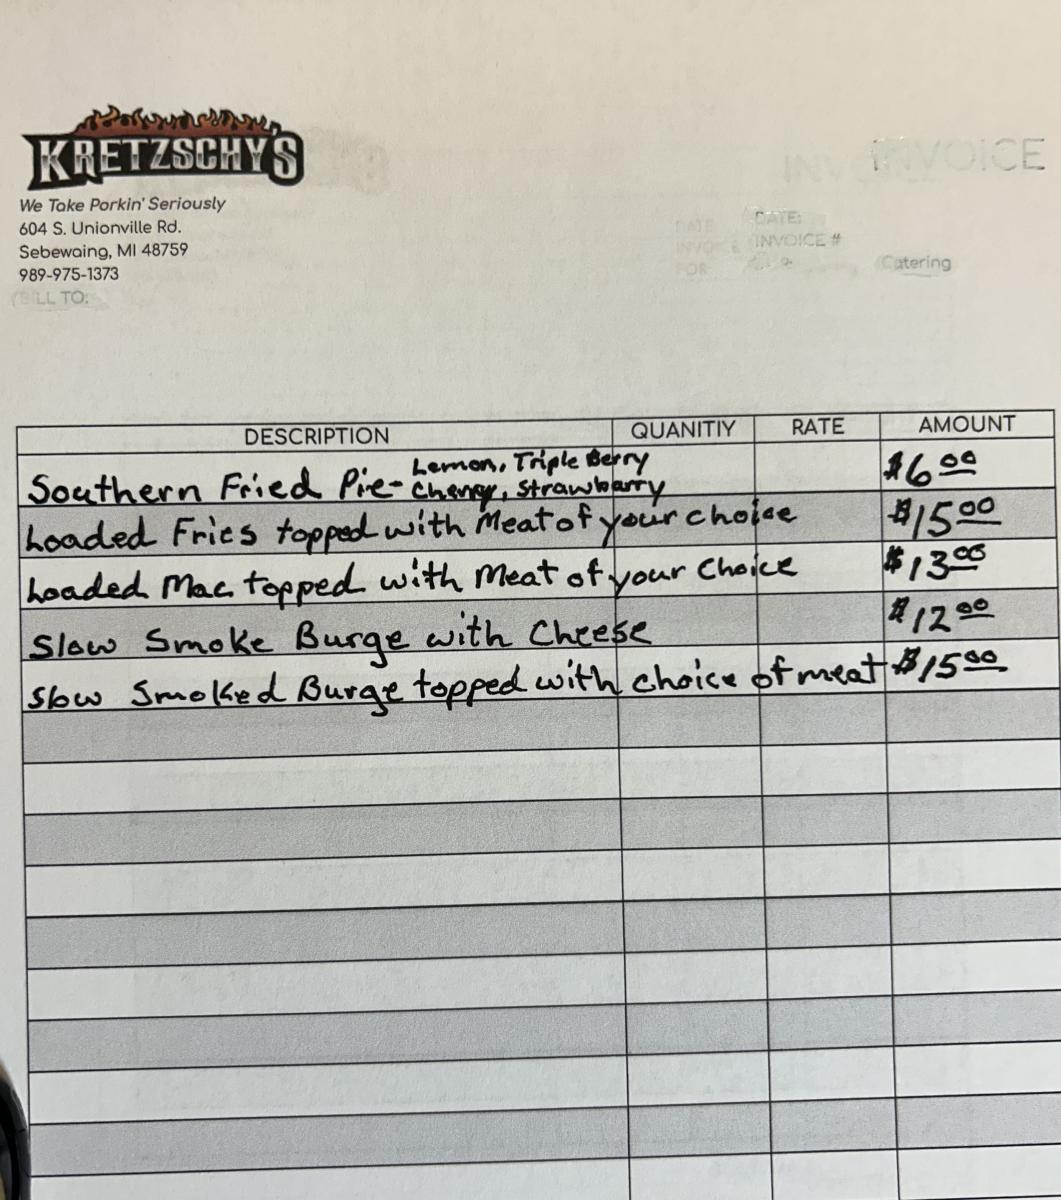 KRETZSCHY'S
INVOICE
We Take Porkin' Seriously
604 S. Unionville Rd.
Sebewaing, MI 48759
989-975-1373
BILL TO:
DATE:
INVOICE #
Catering
DATE
FOR
DESCRIPTION QUANITIY RATE AMOUNT
Southern Fried Pie- Lemon, Triple Berry $6.00
Cherry, Strawbarry
Loaded Fries topped with Meat of your choice $15.00
Loaded Mac topped with Meat of your Choice $13.00
Slow Smoke Burge with Cheese $12.00
Slow Smoked Burge topped with choice of meat $15.00